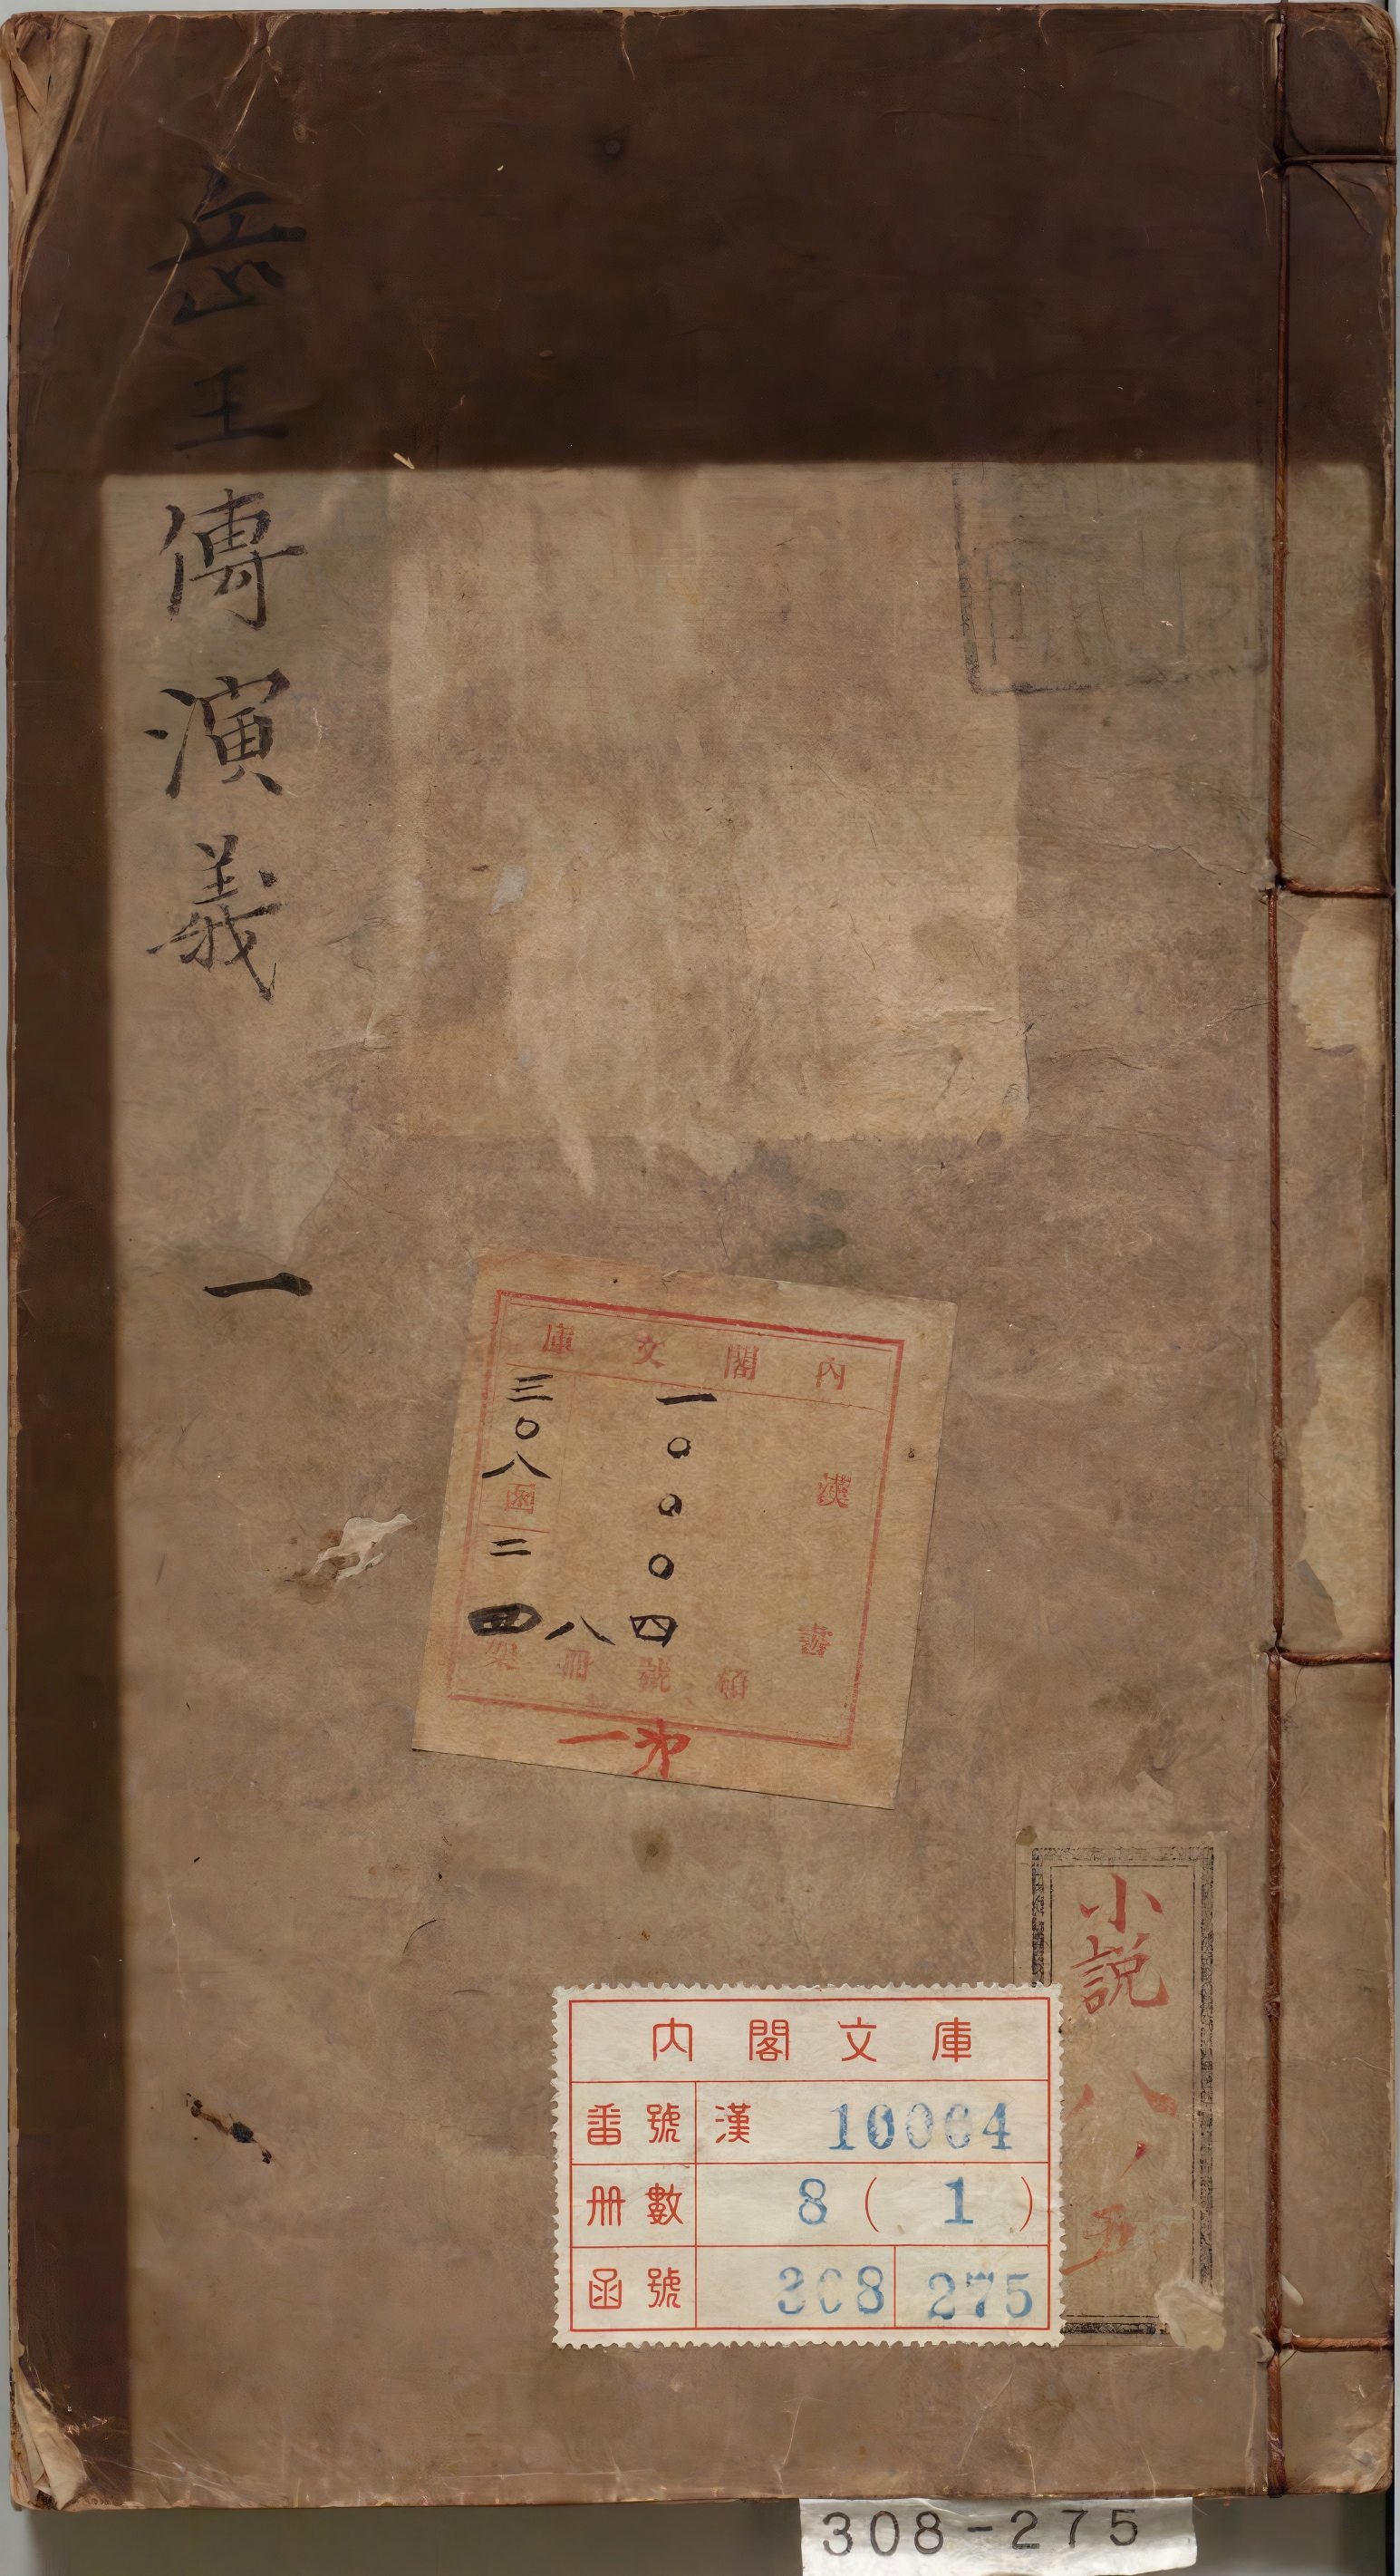 岳王傳演義 一
内閣文庫
漢書
類
一〇〇〇四號
八册
三〇八函
二
架
第一
小說
八ノ五
内閣文庫
番號 漢 10004
册數 8 ( 1 )
函號 308 275
308-275